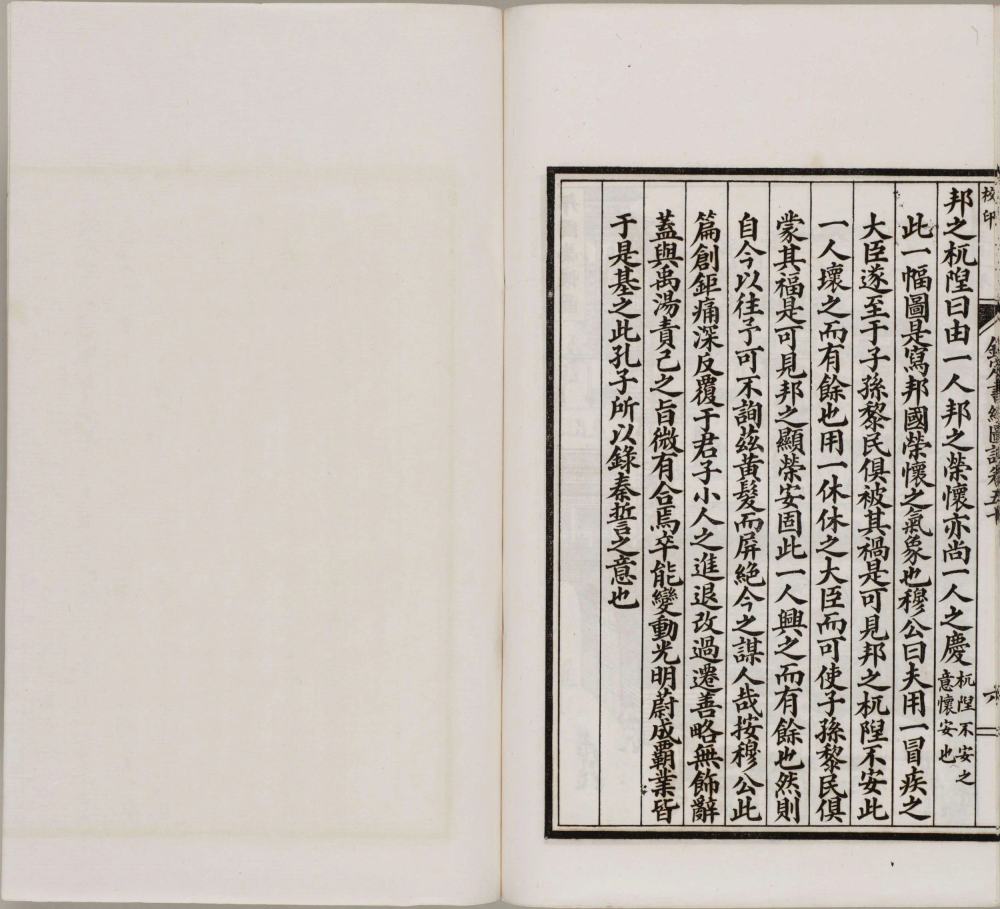 校印
欽定書經圖說卷五十
六
邦之杌隉曰由一人邦之榮懷亦尚一人之慶杌隉不安之意懷安也
此一幅圖是寫邦國榮懷之氣象也穆公曰夫用一冒疾之
大臣遂至于子孫黎民俱被其禍是可見邦之杌隉不安此
一人壞之而有餘也用一休休之大臣而可使子孫黎民俱
蒙其福是可見邦之顯榮安固此一人興之而有餘也然則
自今以往予可不詢茲黃髮而屏絕今之謀人哉按穆公此
篇創鉅痛深反覆于君子小人之進退改過遷善略無飾辭
蓋與禹湯責己之旨微有合焉卒能變動光明蔚成霸業皆
于是基之此孔子所以錄秦誓之意也